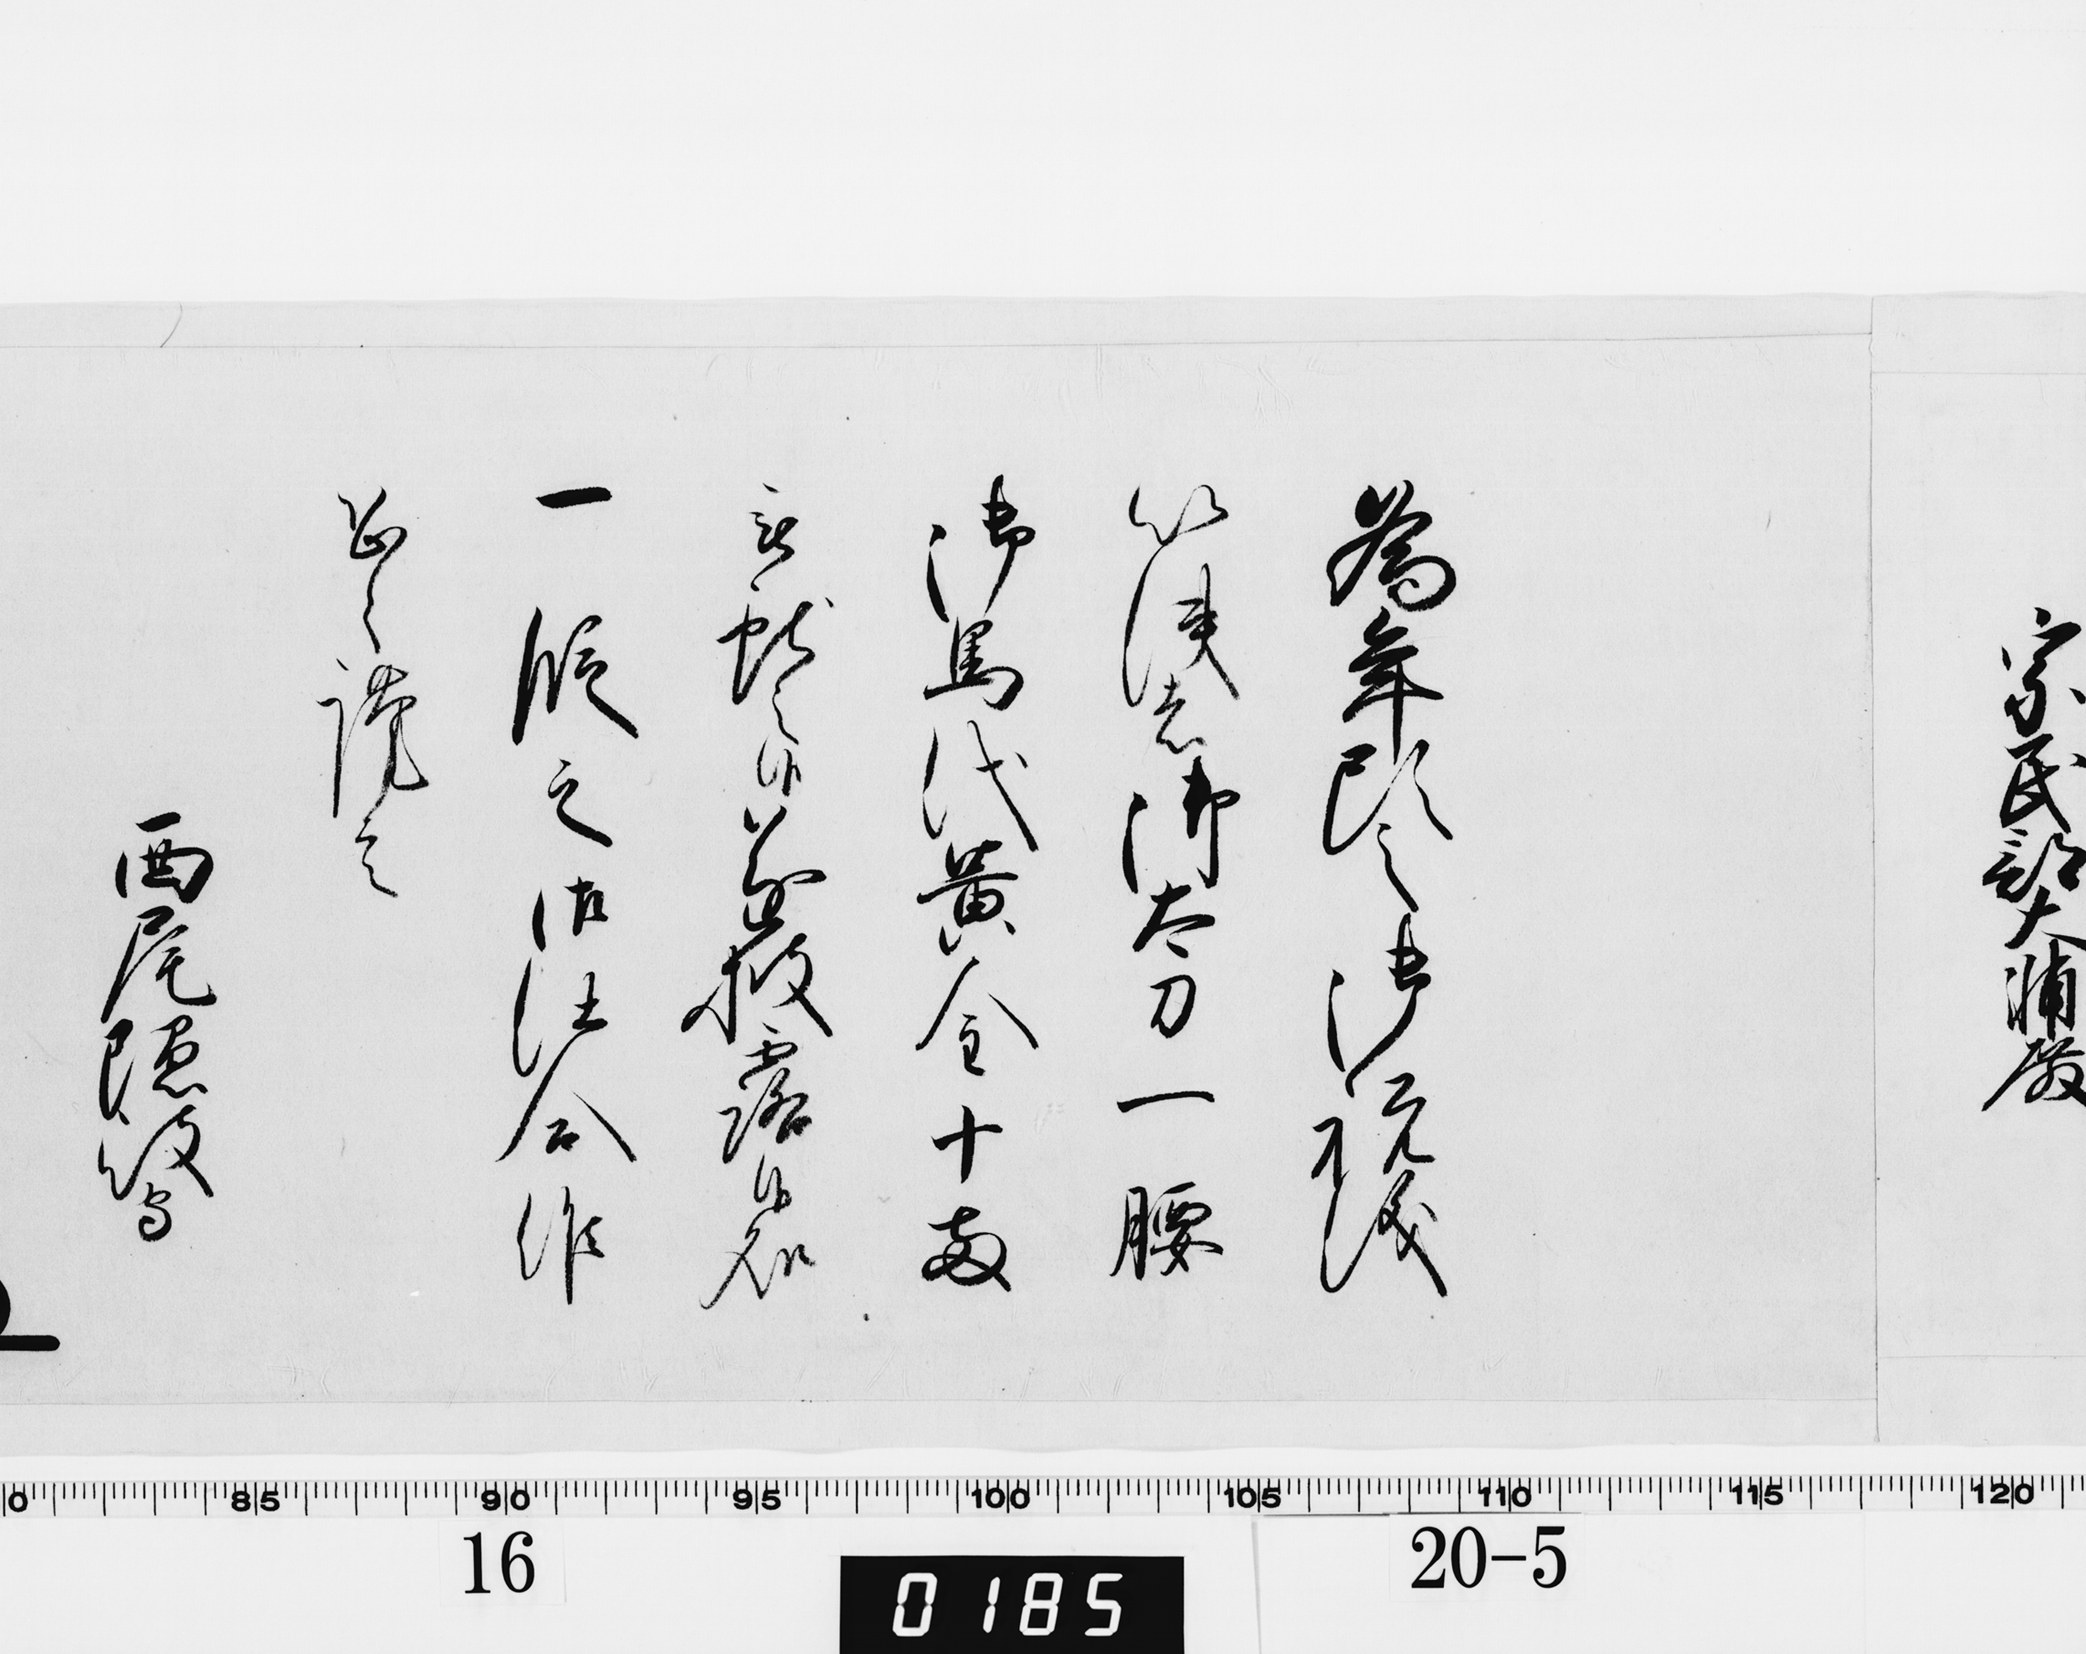 宗民部大輔殿
為年頭之御祝儀
以使者御太刀一腰
御馬代黄金十両
被献之候遂披露候処
一段之御仕合候
恐々謹言
西尾隠岐守
0 85 90 95 100 105 110 115 120
16
0185
20-5